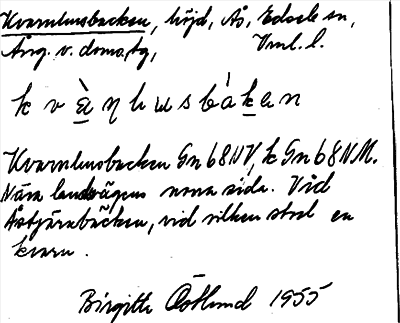 Kvarnhusbacken, höjd, Ås, Edsele sn,
Ång. v. domsg, Vml. l.
k v à̱ ŋ h u s b á ḵ a n
Kvarnhusbacken Gn 68 NV, k Gn 68 NM.
Nära landsvägens norra sida. Vid
Åstjärnbäcken, vid vilken stod en
kvarn.
Birgitta Östlund 1955